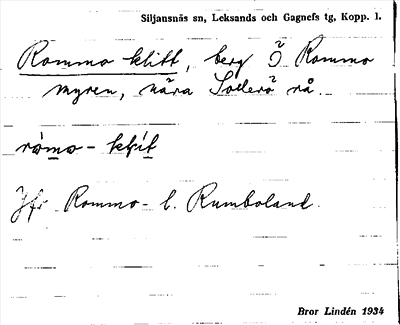 Siljansnäs sn, Leksands och Gagnefs tg, Kopp. l.
Rommo klitt, berg Ö Rommo
myren, nära Sollerö rå.
Jfr Rommo- l. Rumboland.
Bror Lindén 1934